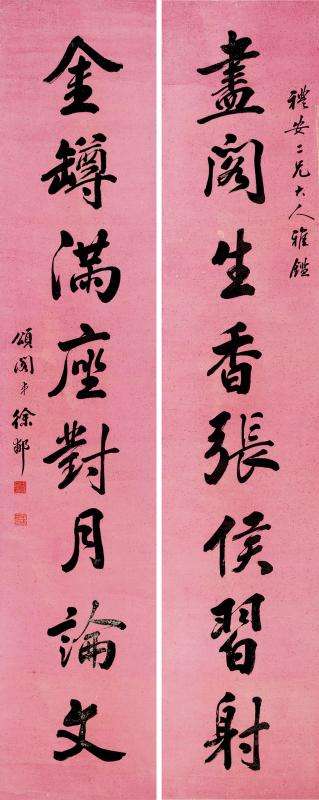 禮安二兄大人雅鑑
畫閣生香張侯習射
金罇滿座對月論文
頌閣弟徐郙